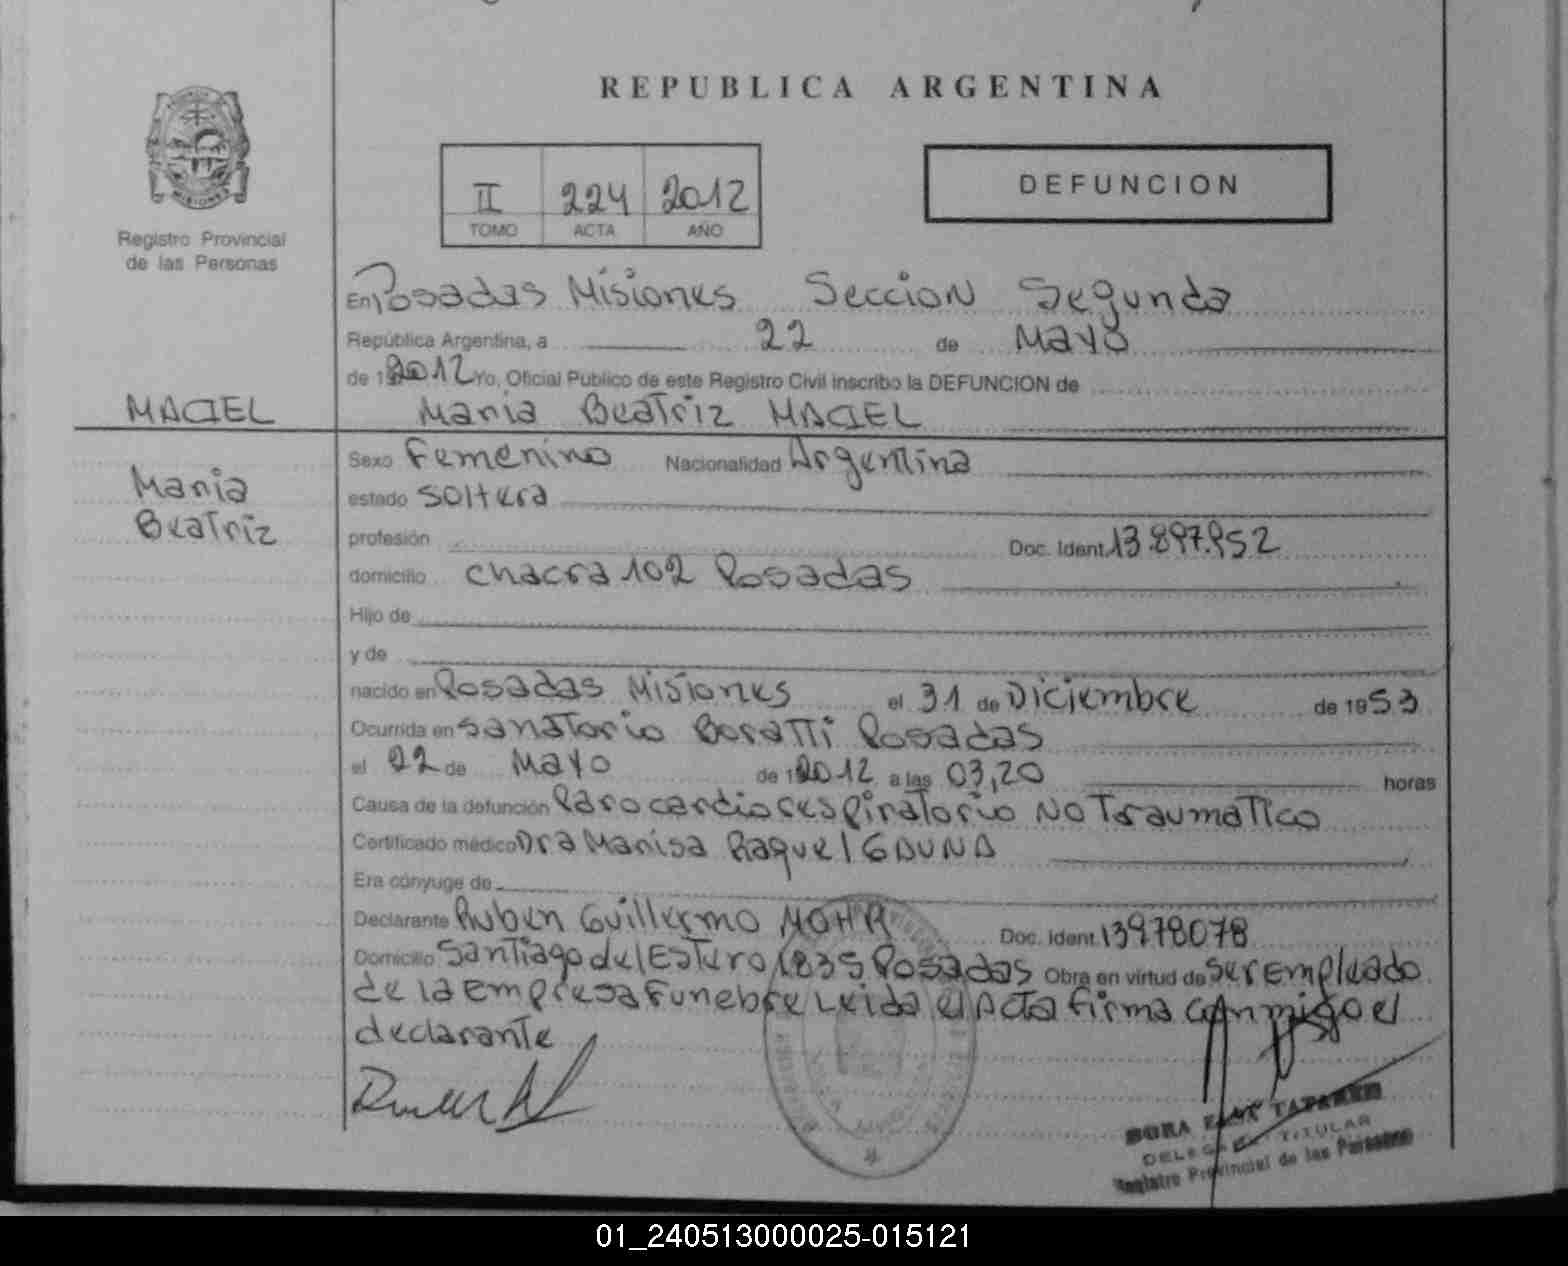 REPUBLICA ARGENTINA
DEFUNCION
II 224 2012
TOMO ACTA AÑO
MISIONES
Registro Provincial
de las Personas
En Posadas Misiones Seccion Segunda
República Argentina, a 22 de Mayo
de 19 2012 Yo, Oficial Público de este Registro Civil inscribo la DEFUNCION de
MACIEL Maria Beatriz MACIEL
Sexo Femenino Nacionalidad Argentina
Maria
estado soltera
Beatriz
profesión Doc. Ident. 13.897.952
domicilio chacra 102 Posadas
Hijo de
y de
nacido en Posadas Misiones el 31 de Diciembre de 1953
Ocurrida en Sanatorio Boratti Posadas
el 22 de Mayo de 19 2012 a las 03,20 horas
Causa de la defunción Paro cardiorespiratorio No Traumatico
Certificado médico Dra Marisa Raquel GAUNA
Era cónyuge de
Declarante Ruben Guillermo MOHR Doc. Ident. 13978078
Domicilio Santiago del Estero 1835 Posadas Obra en virtud de ser Empleado
de la Empresa Funebre Leida el Acta firma conmigo el
declarante
DELEGADA TITULAR
Registro Provincial de las Personas
01_240513000025-015121